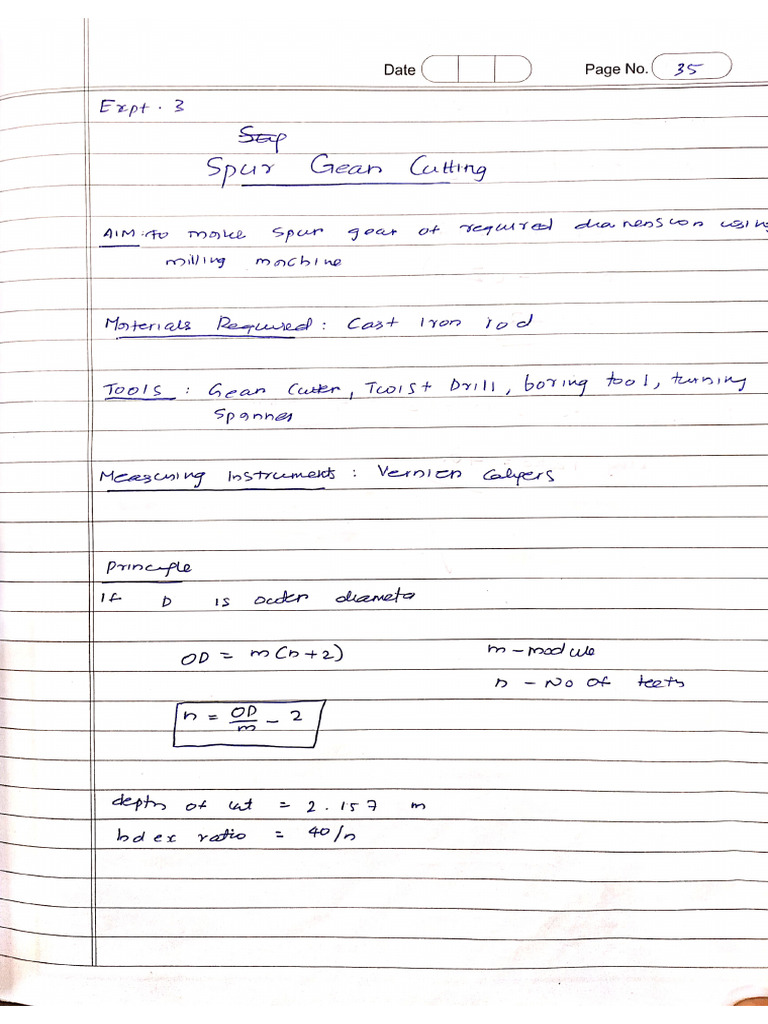 Date Page No. 35
Expt. 3
Spur Gear Cutting
AIM: to make spur gear of required dianension using
milling machine
Materials Required: Cast Iron rod
Tools: Gear Cutter, Twist Drill, boring tool, turning
Spanner
Measuring Instruments: Vernier Calipers
Principle
If D is outer diameter
OD = m(n+2) m-module
n - No of teeth
n = OD/m - 2
depth of cut = 2.157 m
Index ratio = 40/n